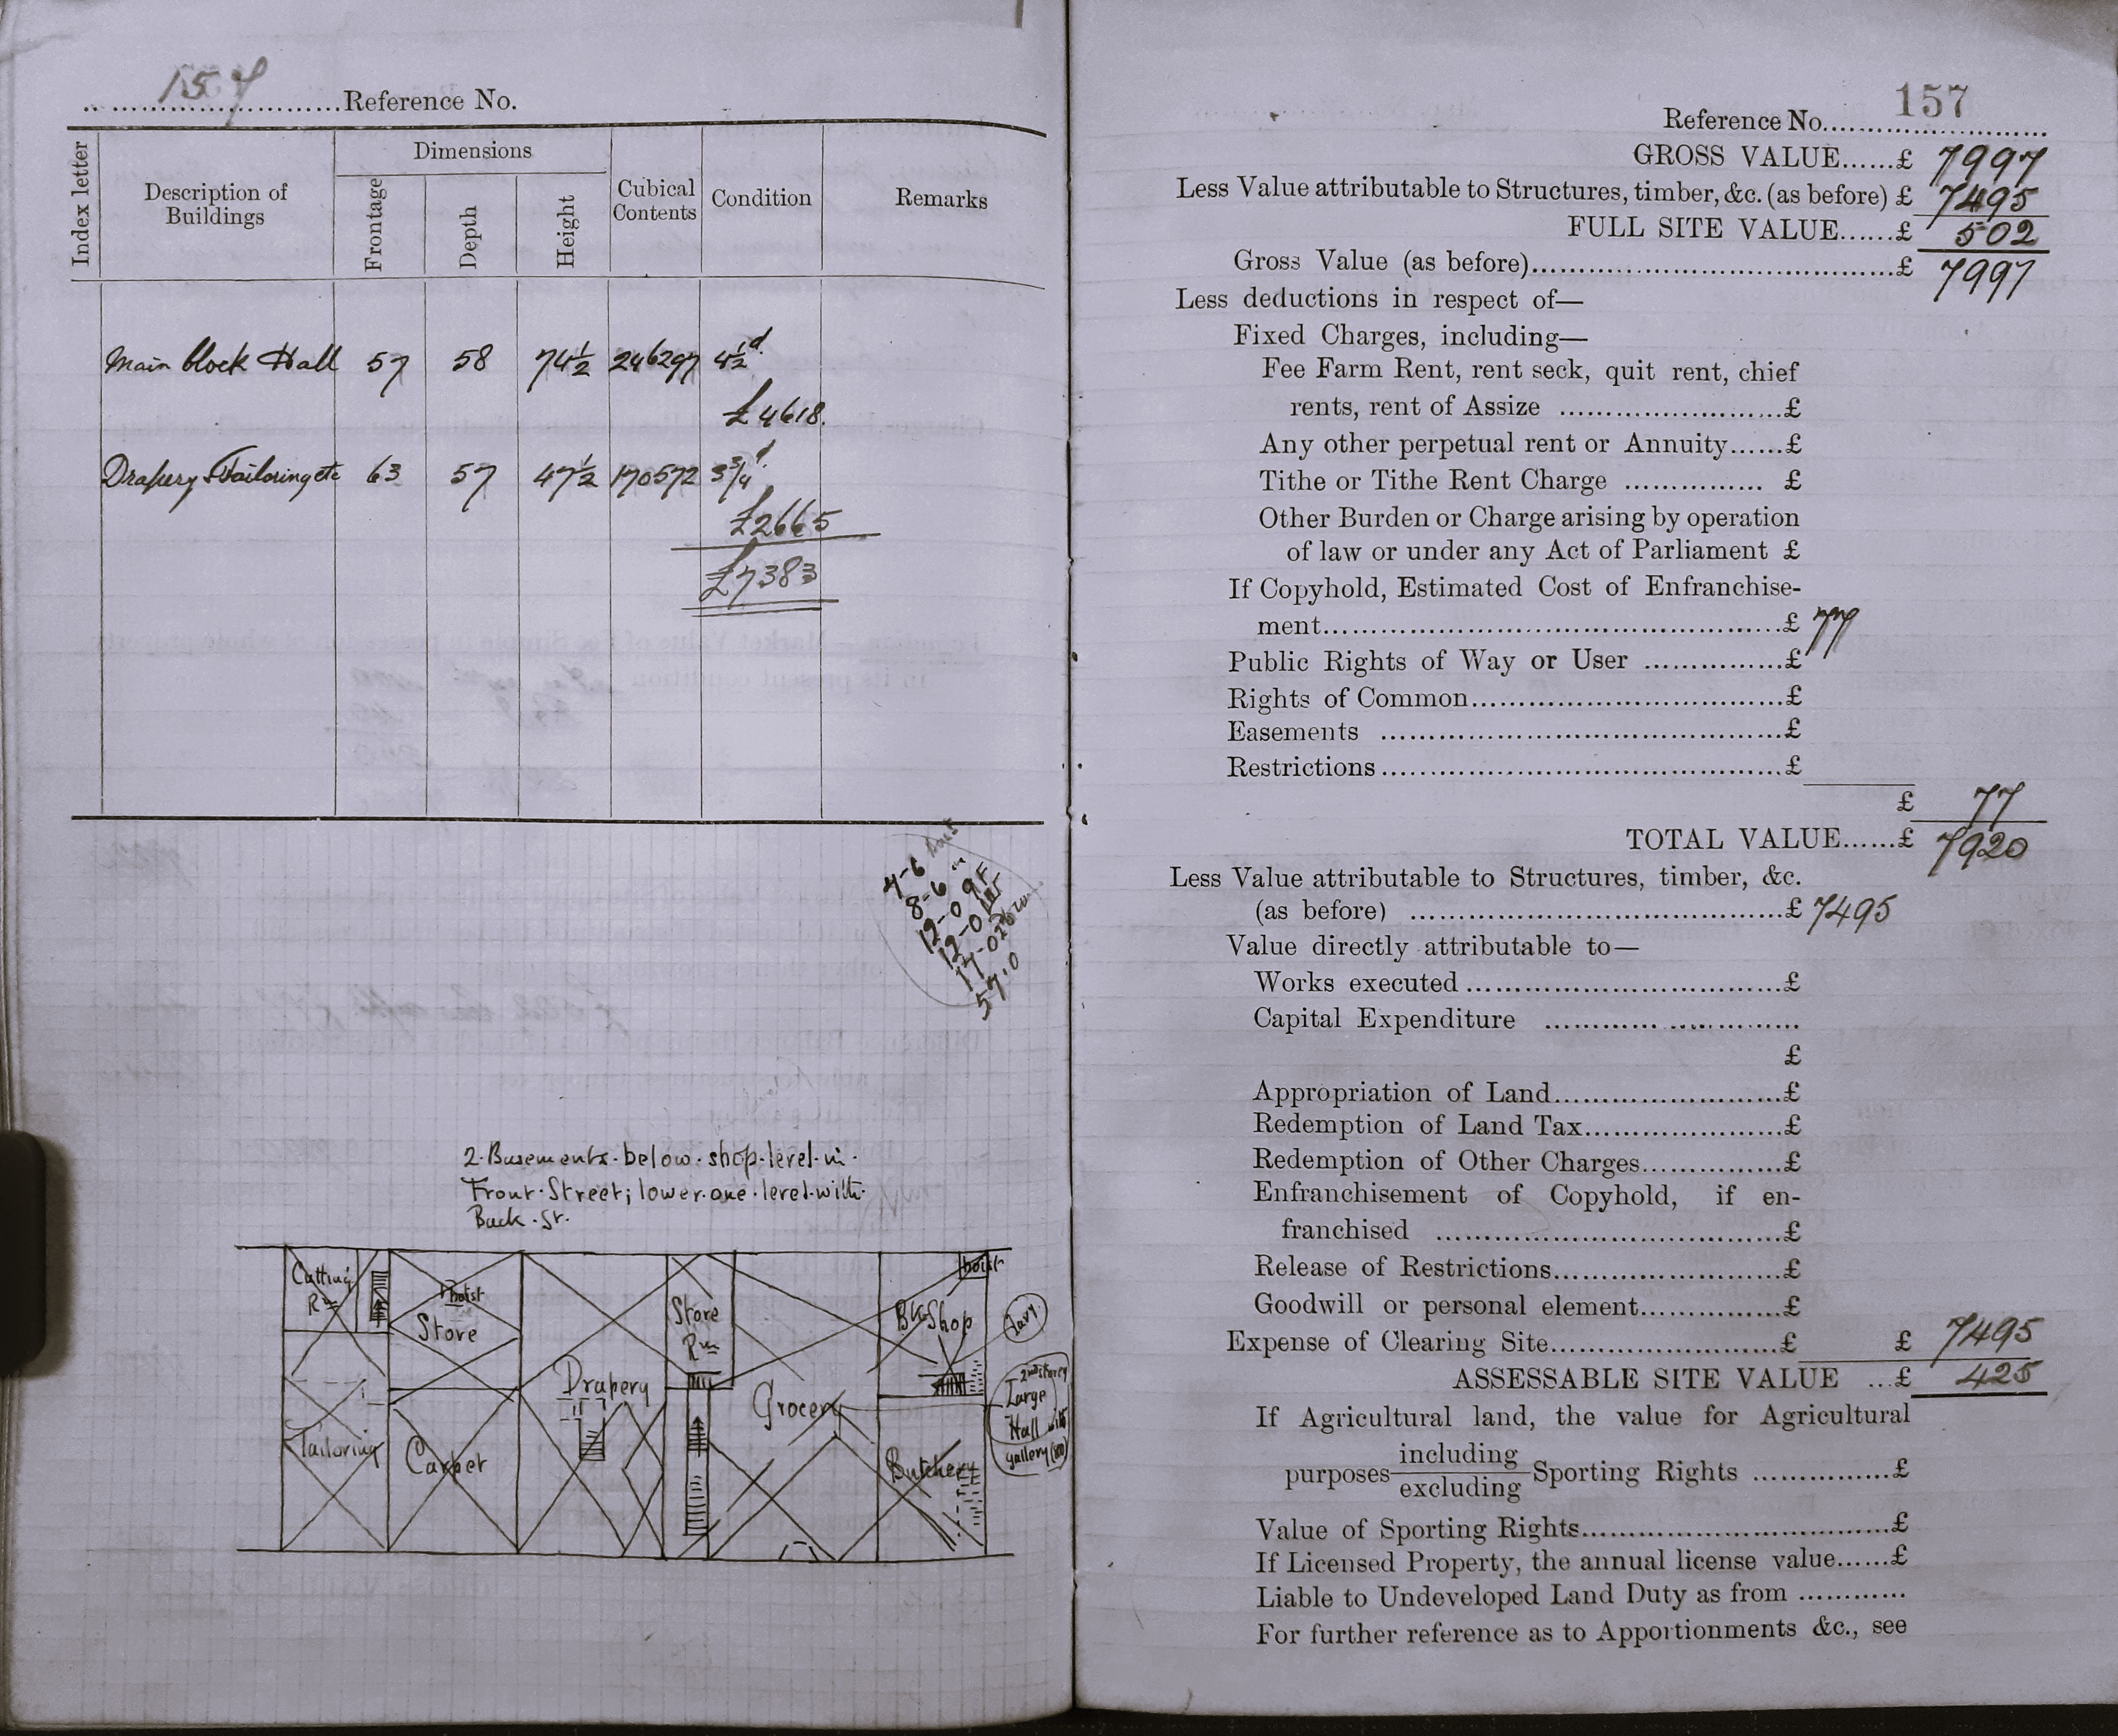 157
Reference No.
Index letter
Description of Buildings
Dimensions
Frontage
Depth
Height
Cubical Contents
Condition
Remarks
Main block Hall 57 58 74½ 246297 4½d.
£4618.
Drapery Tailoring etc 63 57 47½ 170572 3¾d.
£2665
£7383
8-6
12-0 GF
12-0 1st F
17-0
57.0
2. Basements. below. shop. level. in.
Front. Street; lower. one. level. with.
Back. St.
Cutting
Rm
hoist
Store
Store
Rm
hoist
Bk Shop
Lavy.
Drapery
Grocery
2nd storey
Large
Hall with
gallery
Tailoring
Carpet
Butchery
157
Reference No.
GROSS VALUE......£ 7997
Less Value attributable to Structures, timber, &c. (as before) £ 7495
FULL SITE VALUE......£ 502
Gross Value (as before)......£ 7997
Less deductions in respect of—
Fixed Charges, including—
Fee Farm Rent, rent seck, quit rent, chief
rents, rent of Assize ......£
Any other perpetual rent or Annuity......£
Tithe or Tithe Rent Charge ...... £
Other Burden or Charge arising by operation
of law or under any Act of Parliament £
If Copyhold, Estimated Cost of Enfranchise-
ment......£ 77
Public Rights of Way or User ......£
Rights of Common......£
Easements ......£
Restrictions......£
£ 77
TOTAL VALUE......£ 7920
Less Value attributable to Structures, timber, &c.
(as before) ......£ 7495
Value directly attributable to—
Works executed ......£
Capital Expenditure ......
£
Appropriation of Land......£
Redemption of Land Tax......£
Redemption of Other Charges......£
Enfranchisement of Copyhold, if en-
franchised ......£
Release of Restrictions......£
Goodwill or personal element......£
Expense of Clearing Site......£ £ 7495
ASSESSABLE SITE VALUE ...£ 425
If Agricultural land, the value for Agricultural
including
purposes Sporting Rights ......£
excluding
Value of Sporting Rights......£
If Licensed Property, the annual license value......£
Liable to Undeveloped Land Duty as from ............
For further reference as to Apportionments &c., see